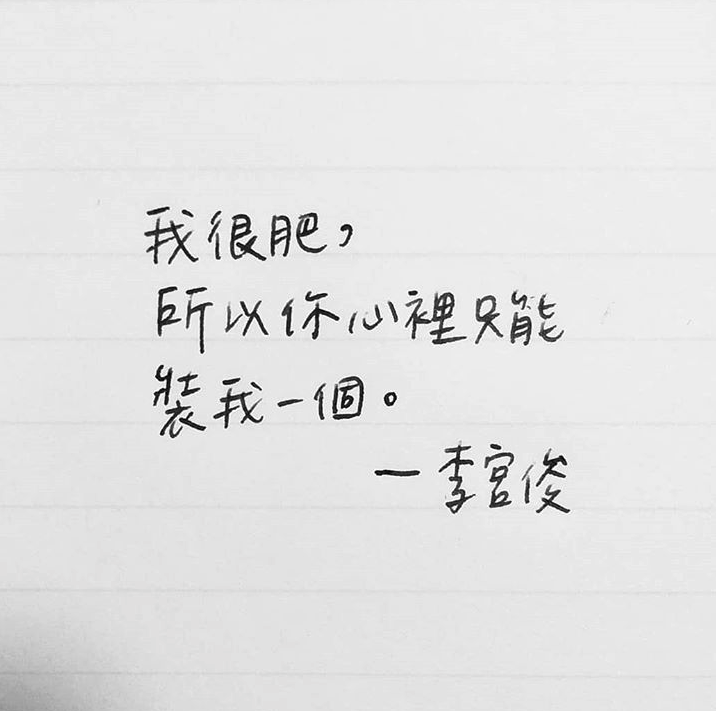 我很肥，
所以你心裡只能
裝我一個。
－李宮俊